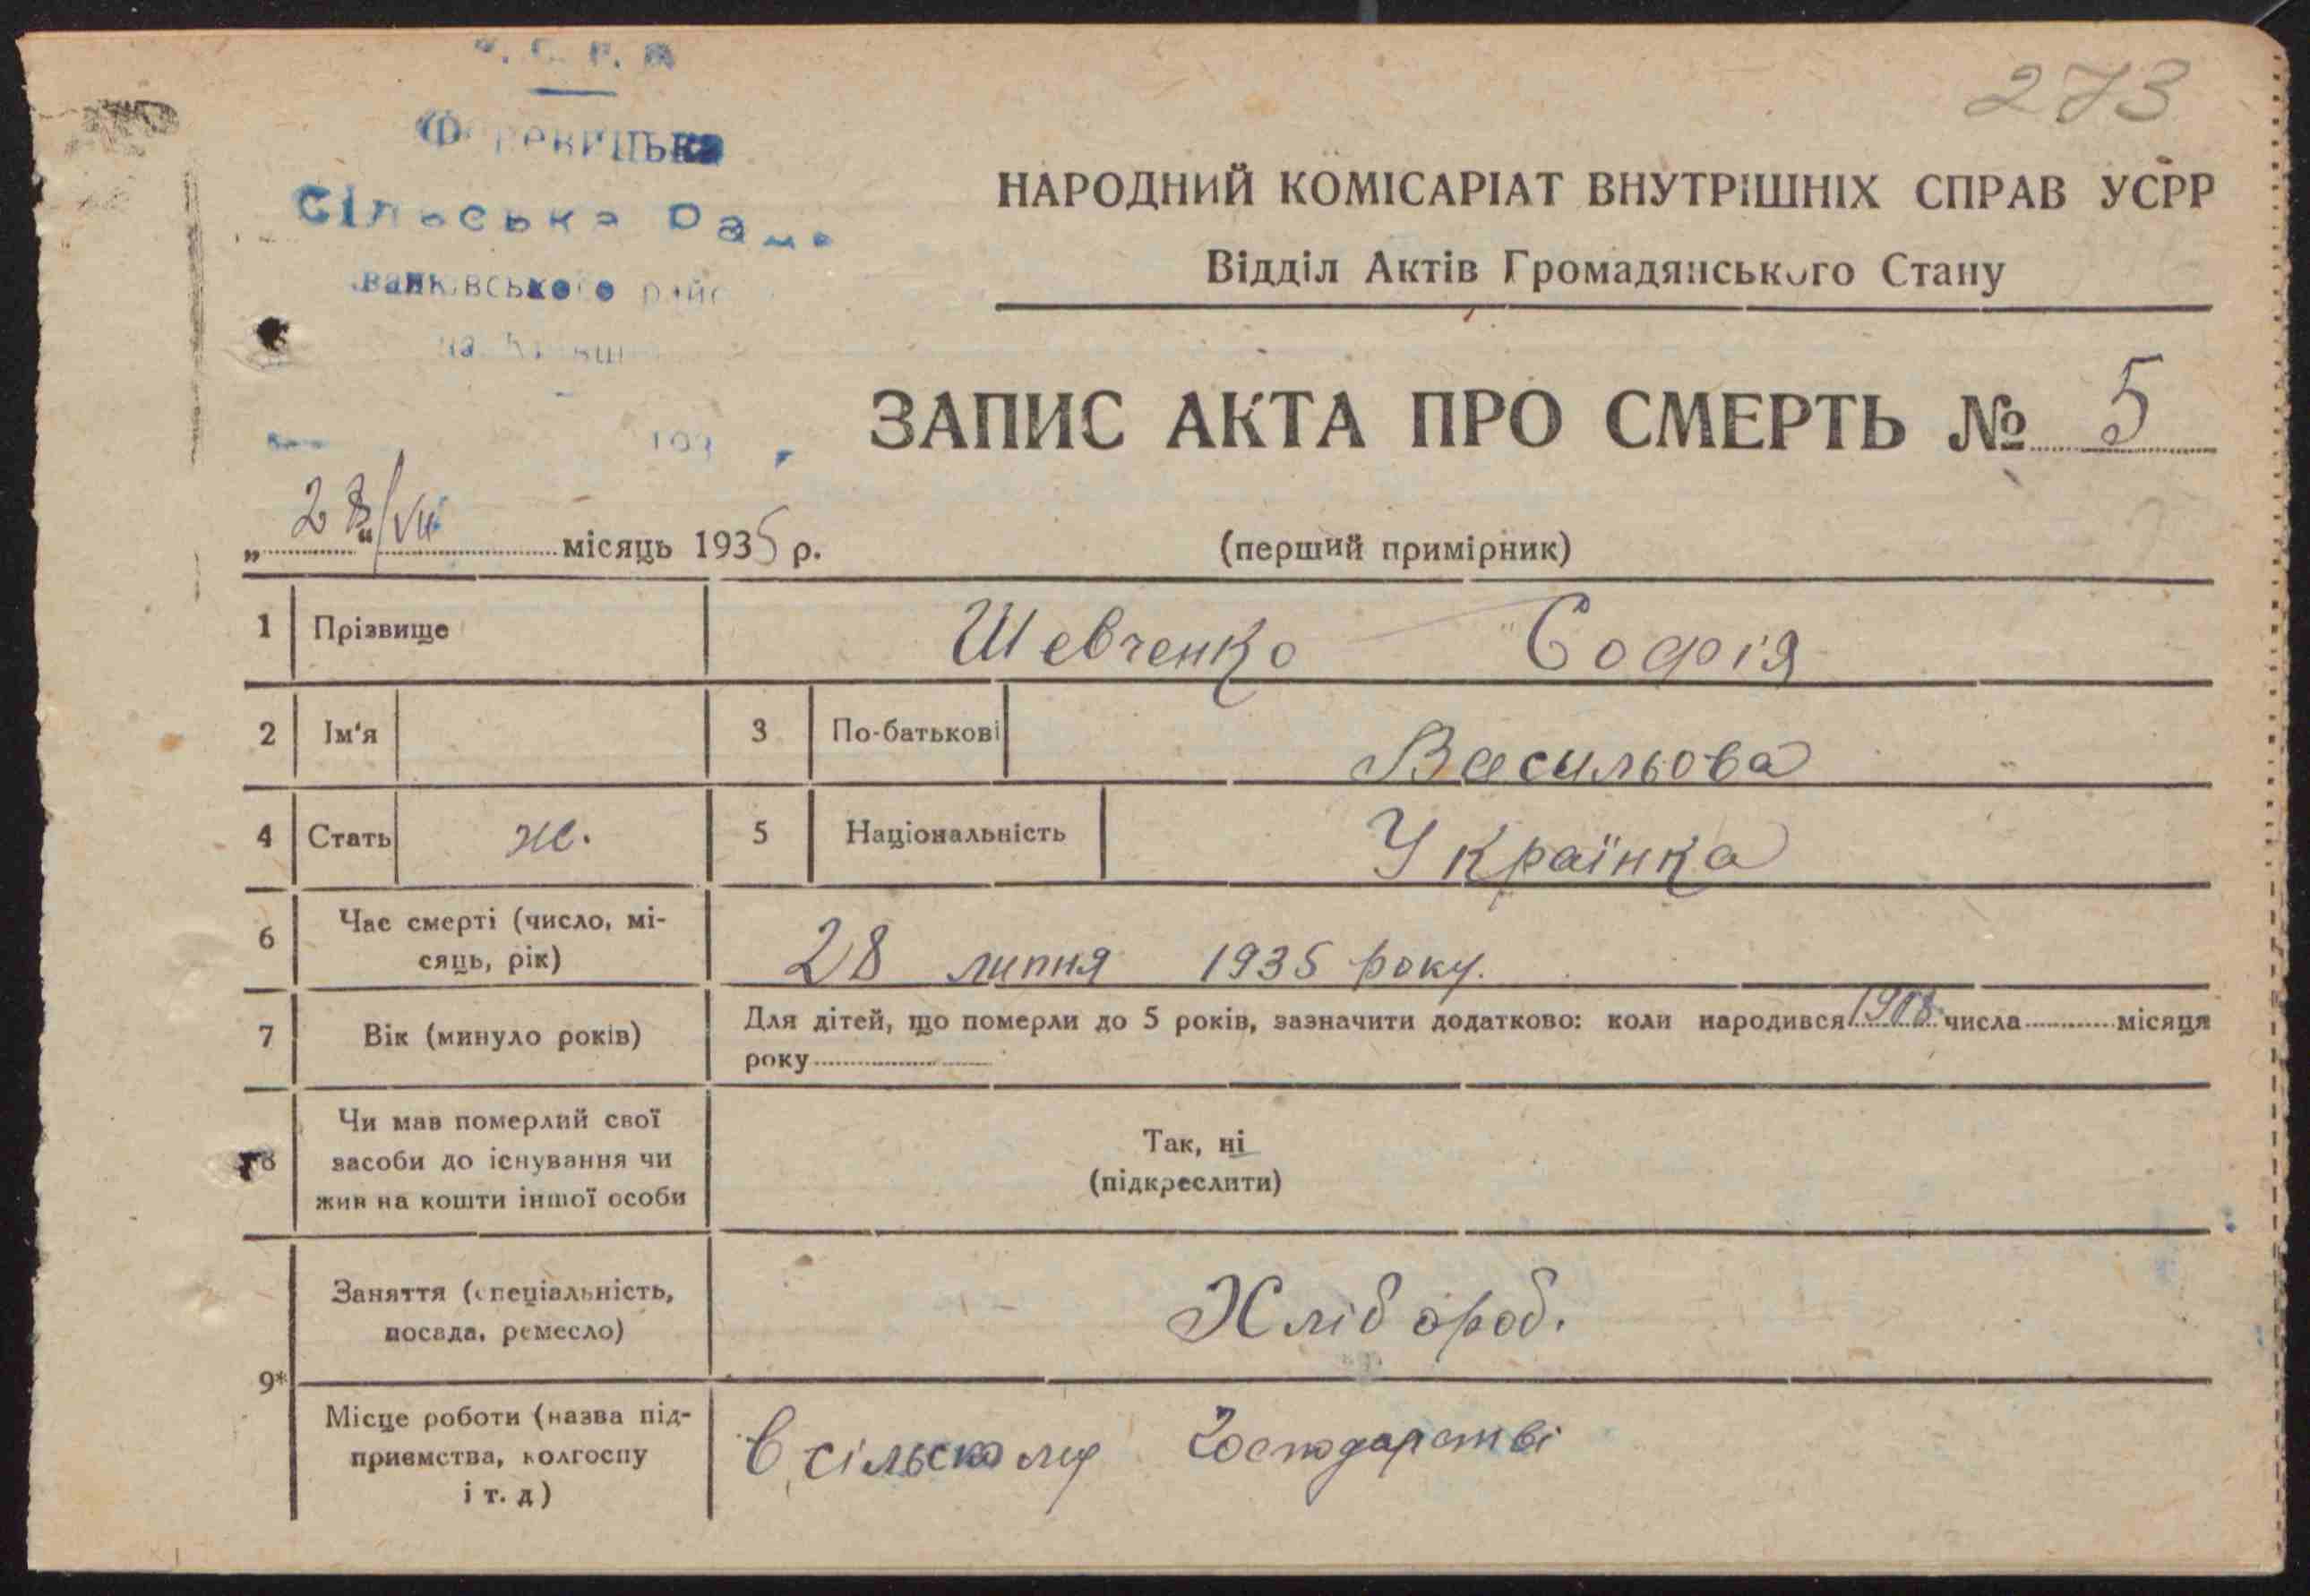 273
Сільська Рада
НАРОДНИЙ КОМІСАРІАТ ВНУТРІШНІХ СПРАВ УСРР
Відділ Актів Громадянського Стану
ЗАПИС АКТА ПРО СМЕРТЬ № 5
„28“/VII місяць 1935 р.
(перший примірник)
1 Прізвище Шевченко Софія
2 Ім'я 3 По-батькові Васильова
4 Стать ж. 5 Національність Українка
6 Час смерті (число, мі-
сяць, рік) 28 липня 1935 року.
7 Вік (минуло років) Для дітей, що померли до 5 років, зазначити додатково: коли народився 1908 числа місяця
року
8 Чи мав померлий свої
засоби до існування чи
жив на кошти іншої особи
Так, ні
(підкреслити)
Заняття (спеціальність,
посада, ремесло) Хлібороб.
9*
Місце роботи (назва під-
приємства, колгоспу
і т. д) В сільському господарстві